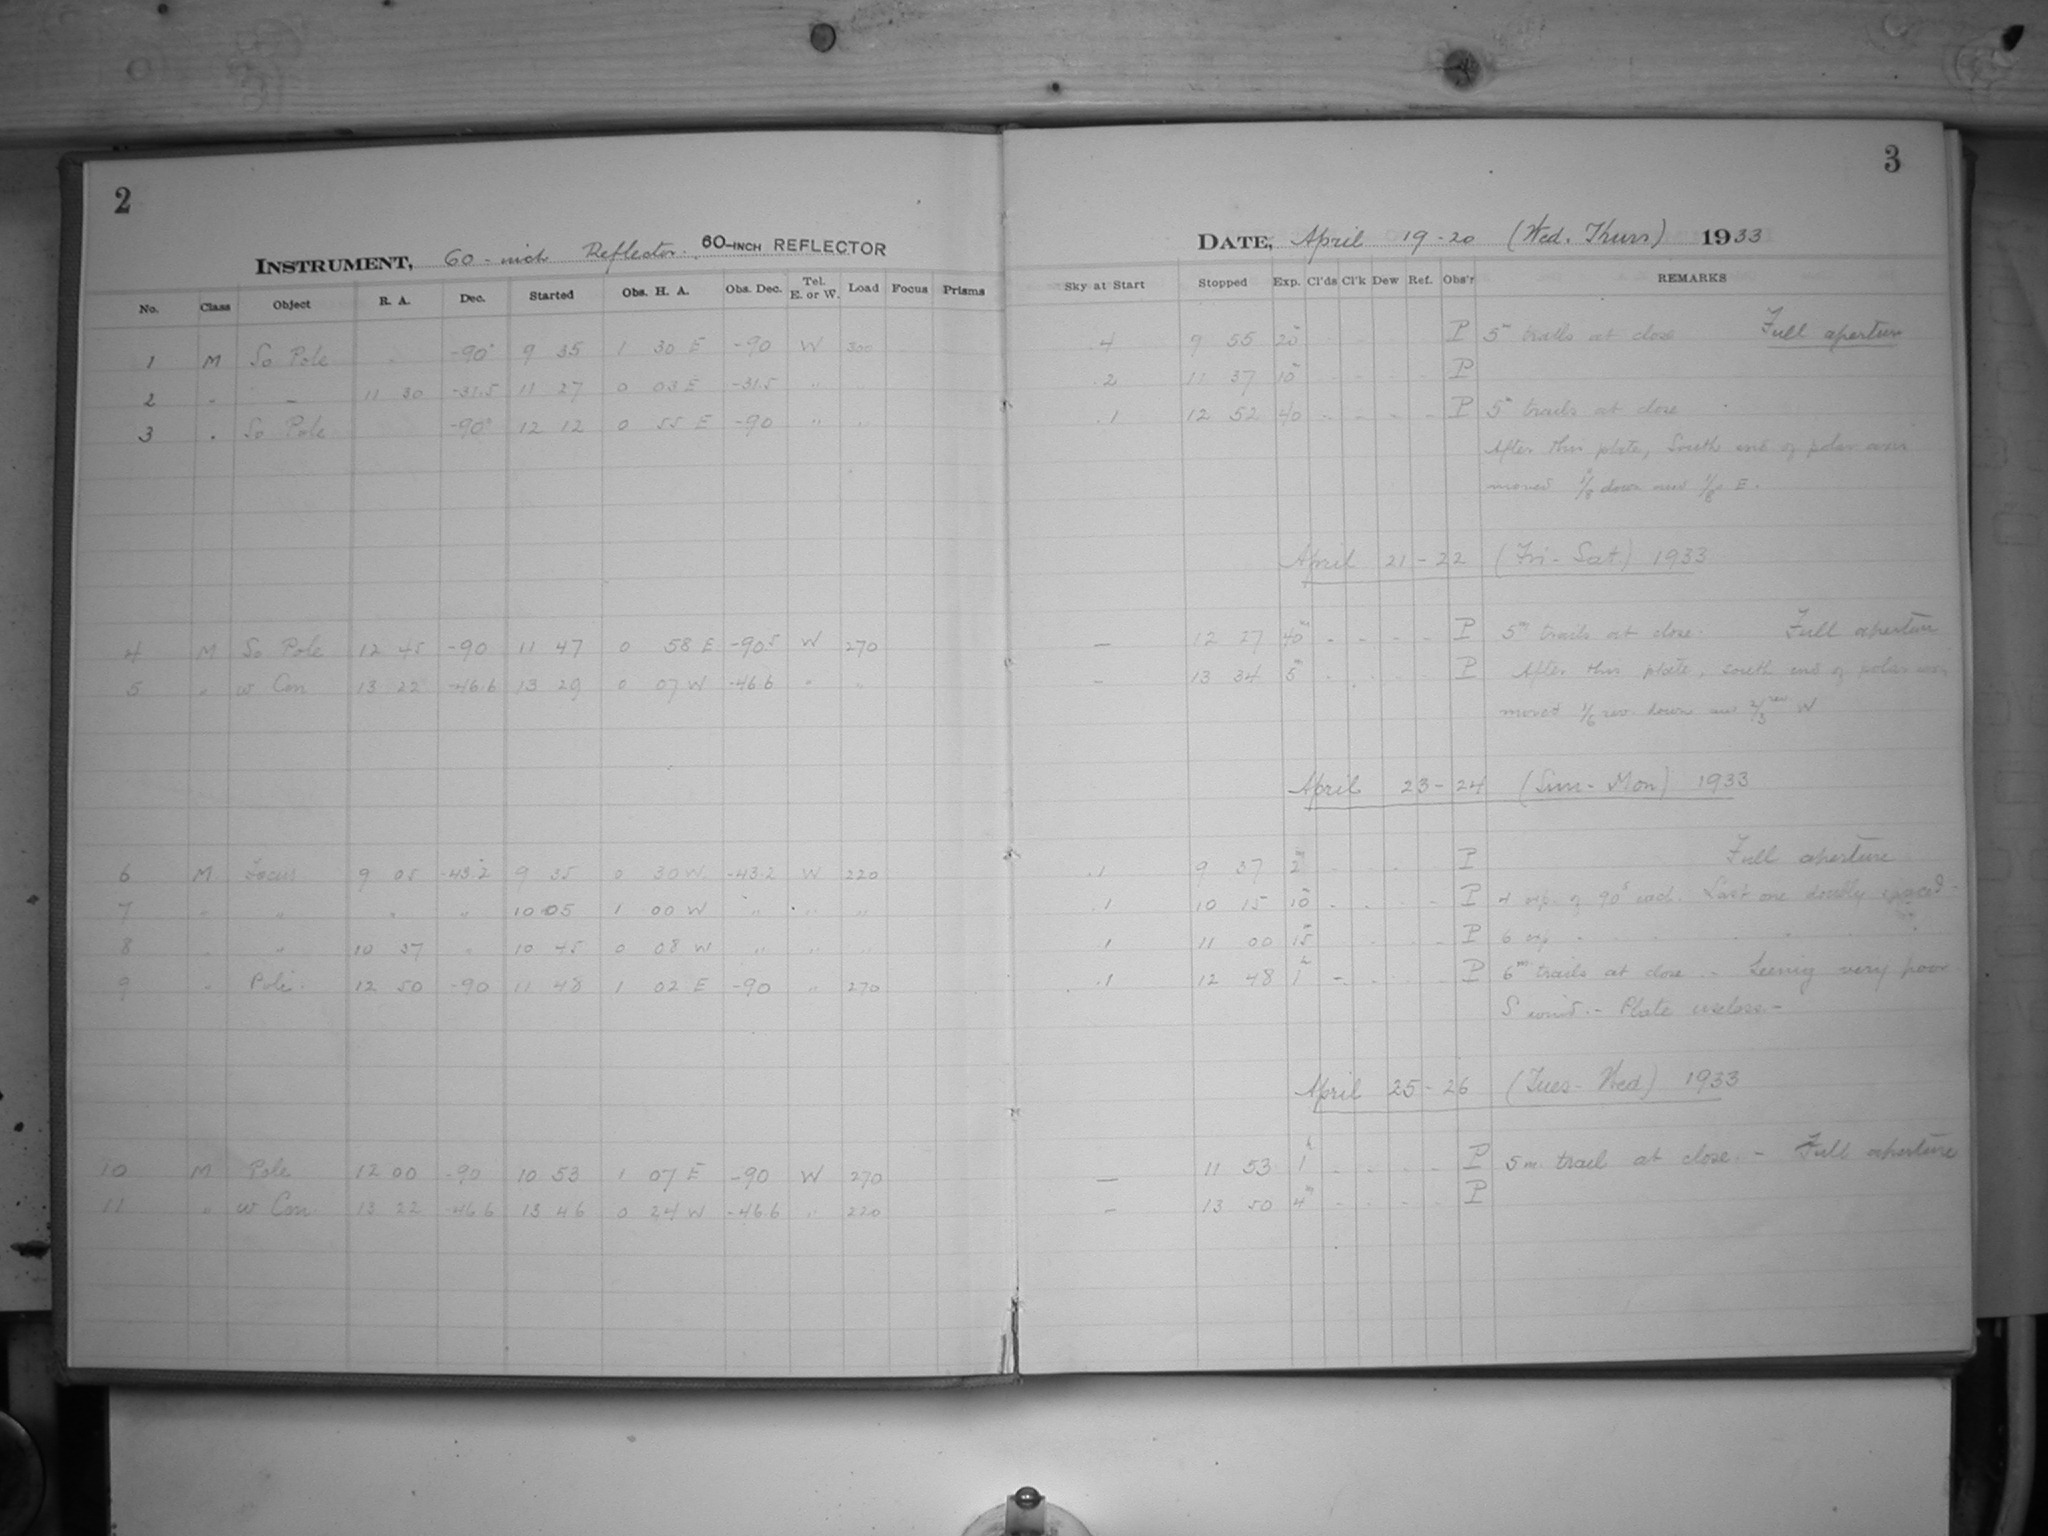 2
INSTRUMENT, 60-inch Reflector. 60-INCH REFLECTOR
No. Class Object R. A. Dec. Started Obs. H. A. Obs. Dec. Tel. E. or W. Load Focus Prisms
1 M So Pole -90° 9 35 1 30 E -90 W 300
2 " - 11 30 -31.5 11 27 0 03 E -31.5 " "
3 " So Pole -90° 12 12 0 55 E -90 " "
4 M So Pole 12 45 -90 11 47 0 58 E -90.5 W 270
5 " w Cen 13 22 -46.6 13 29 0 07 W -46.6 " "
6 M Focus 9 05 -43.2 9 35 0 30 W -43.2 W 220
7 " " " " 10 05 1 00 W " " "
8 " " 10 37 " 10 45 0 08 W " " "
9 " Pole 12 50 -90 11 48 1 02 E -90 " 270
10 M Pole 12 00 -90 10 53 1 07 E -90 W 270
11 " w Cen 13 22 -46.6 13 46 0 24 W -46.6 " 220
3
DATE, April 19-20 (Wed. Thurs) 1933
Sky at Start Stopped Exp. Cl'ds Cl'k Dew Ref. Obs'r REMARKS
.4 9 55 20m - - - - P 5m trails at close Full aperture
.2 11 37 10m - - - - P
.1 12 52 40 - - - - P 5m trails at close
After this plate, South end of polar axis
moved 1/8 down and 1/8 E.
April 21-22 (Fri-Sat) 1933
— 12 27 40m - - - - P 5m trails at close. Full aperture
— 13 34 5m - - - - P After this plate, south end of polar axis
moved 1/6 rev. down and 2/3 rev W
April 23-24 (Sun-Mon) 1933
.1 9 37 2m - - - - P Full aperture
.1 10 15 10m - - - - P 4 exp. of 90s each. Last one doubly spaced-
.1 11 00 15m - - - - P 6 exp
.1 12 48 1h - - - - P 6m trails at close - Seeing very poor
S wind. - Plate useless -
April 25-26 (Tues-Wed) 1933
— 11 53 1h - - - - P 5m. trail at close. - Full aperture
— 13 50 4m - - - - P